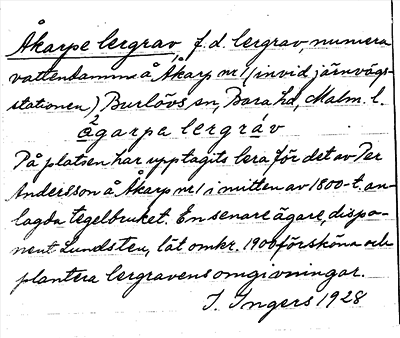 Åkarps lergrav, f.d. lergrav, numera
vattendamm å Åkarp nr 1 (invid järnvägs-
stationen) Burlövs sn, Bara hd, Malm. l.
ågarpa lergráv
På platsen har upptagits lera för det av Per
Andersson å Åkarp nr 1 i mitten av 1800-t. an-
lagda tegelbruket. En senare ägare, dispo-
nent Lundsten, lät omkr. 1900 försköna och
plantera lergravens omgivningar.
I. Ingers 1928